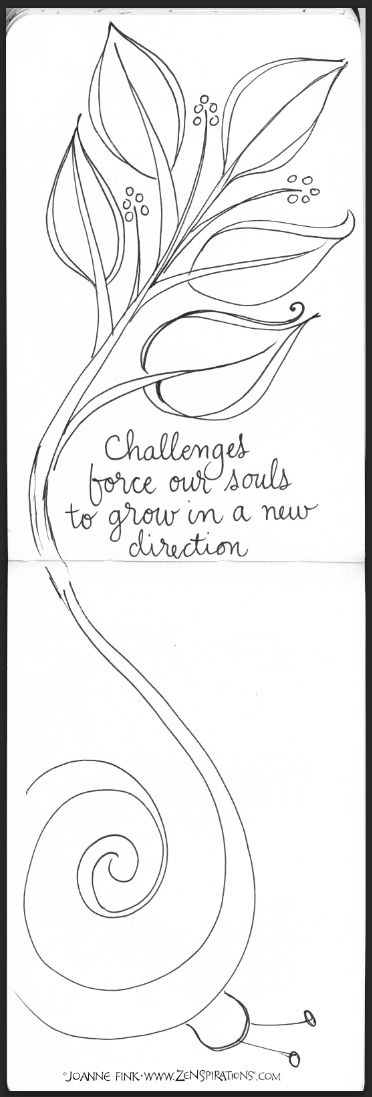 Challenges
force our souls
to grow in a new
direction
©JOANNE FINK•WWW.ZENSPIRATIONS®.COM